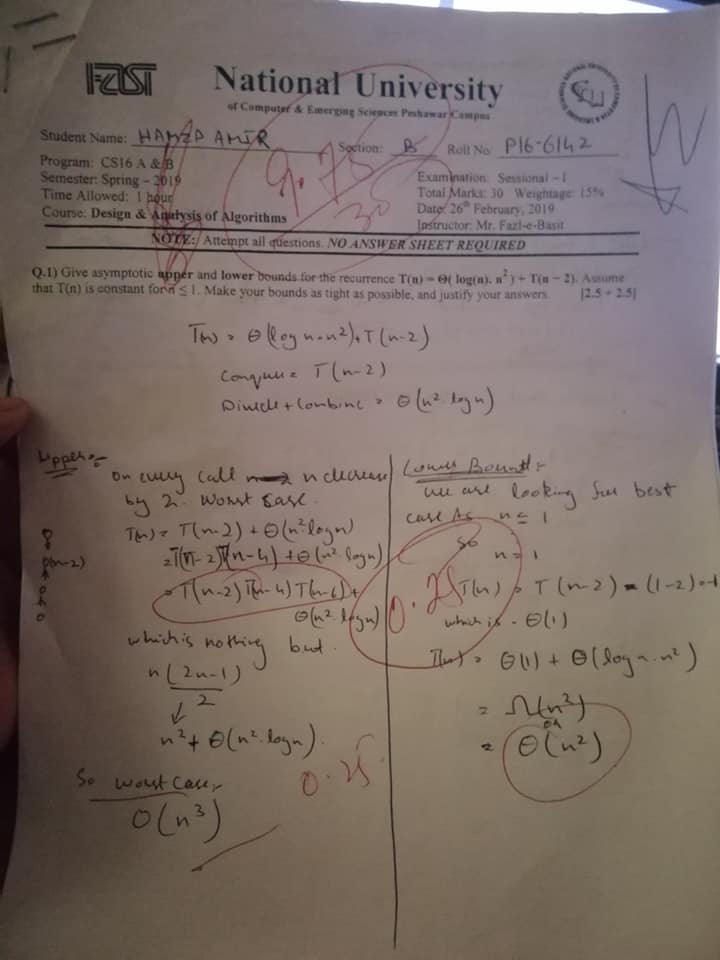 FAST
National University
of Computer & Emerging Sciences Peshawar Campus
Student Name: HAMZA AMIR Section: B Roll No P16-6142
Program: CS16 A & B
Semester: Spring - 2019
Time Allowed: 1 hour
Course: Design & Analysis of Algorithms
Examination: Sessional - I
Total Marks: 30 Weightage: 15%
Date: 26th February, 2019
Instructor: Mr. Fazl-e-Basit
9.75
30
NOTE: Attempt all questions. NO ANSWER SHEET REQUIRED
Q.1) Give asymptotic upper and lower bounds for the recurrence T(n) = Θ( log(n). n²) + T(n – 2). Assume
that T(n) is constant for n ≤ 1. Make your bounds as tight as possible, and justify your answers. [2.5 + 2.5]
T(n) = Θ(log n · n²) + T(n-2)
Conquer = T(n-2)
Divide + Combine = Θ(n² · log n)
Upper:-
on every call n decrease
by 2. Worst case.
T(n) = T(n-2) + Θ(n² log n)
= T(n-2) T(n-4) + Θ(n² · log n)
= T(n-2) T(n-4) T(n-6) +
Θ(n² · log n)
which is nothing but.
n(2n-1)
2
n² + Θ(n² · log n).
So worst case,
O(n³)
0.25
Lower Bound:-
we are looking for best
case As n ≤ 1
so
n = 1
T(n) = T(n-2) = (1-2) = -1
which is - Θ(1)
T(n) = Θ(1) + Θ(log n · n²)
= Ω(n²)
or
= Θ(n²)
0.25